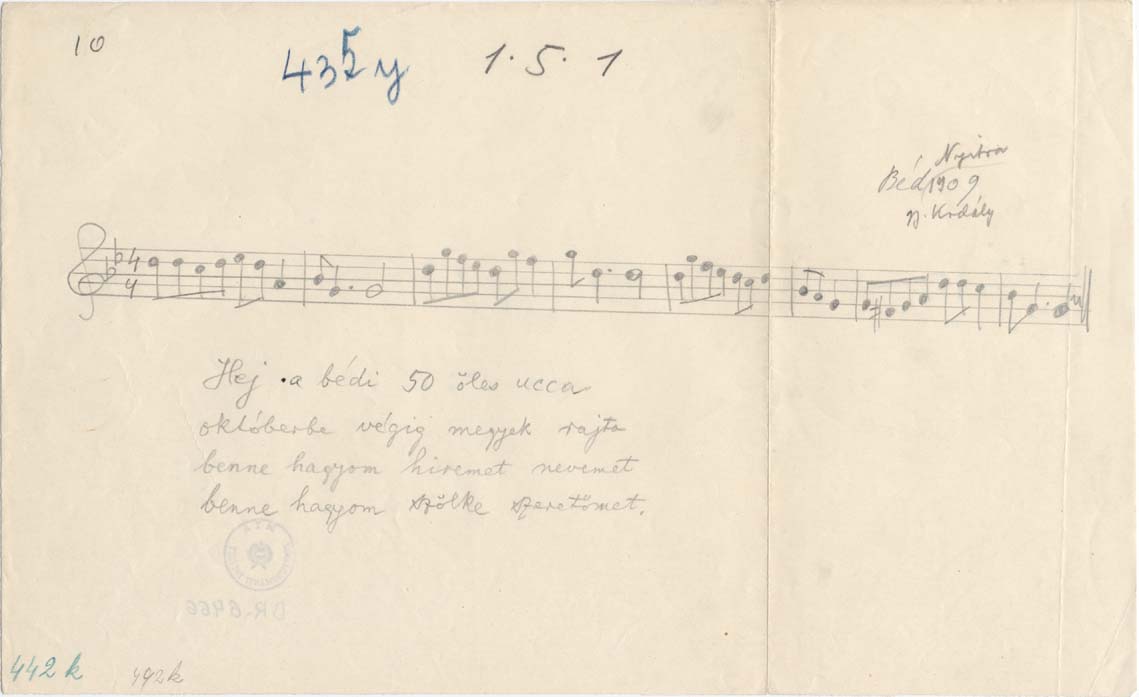 10
435 y 1·5·1
Nyitra
Béd 1909
gy. Kodály
4
4
Hej a bédi 50 öles ucca
októberbe végig megyek rajta
benne hagyom hiremet nevemet
benne hagyom szőlke szeretőmet.
442 k 492k